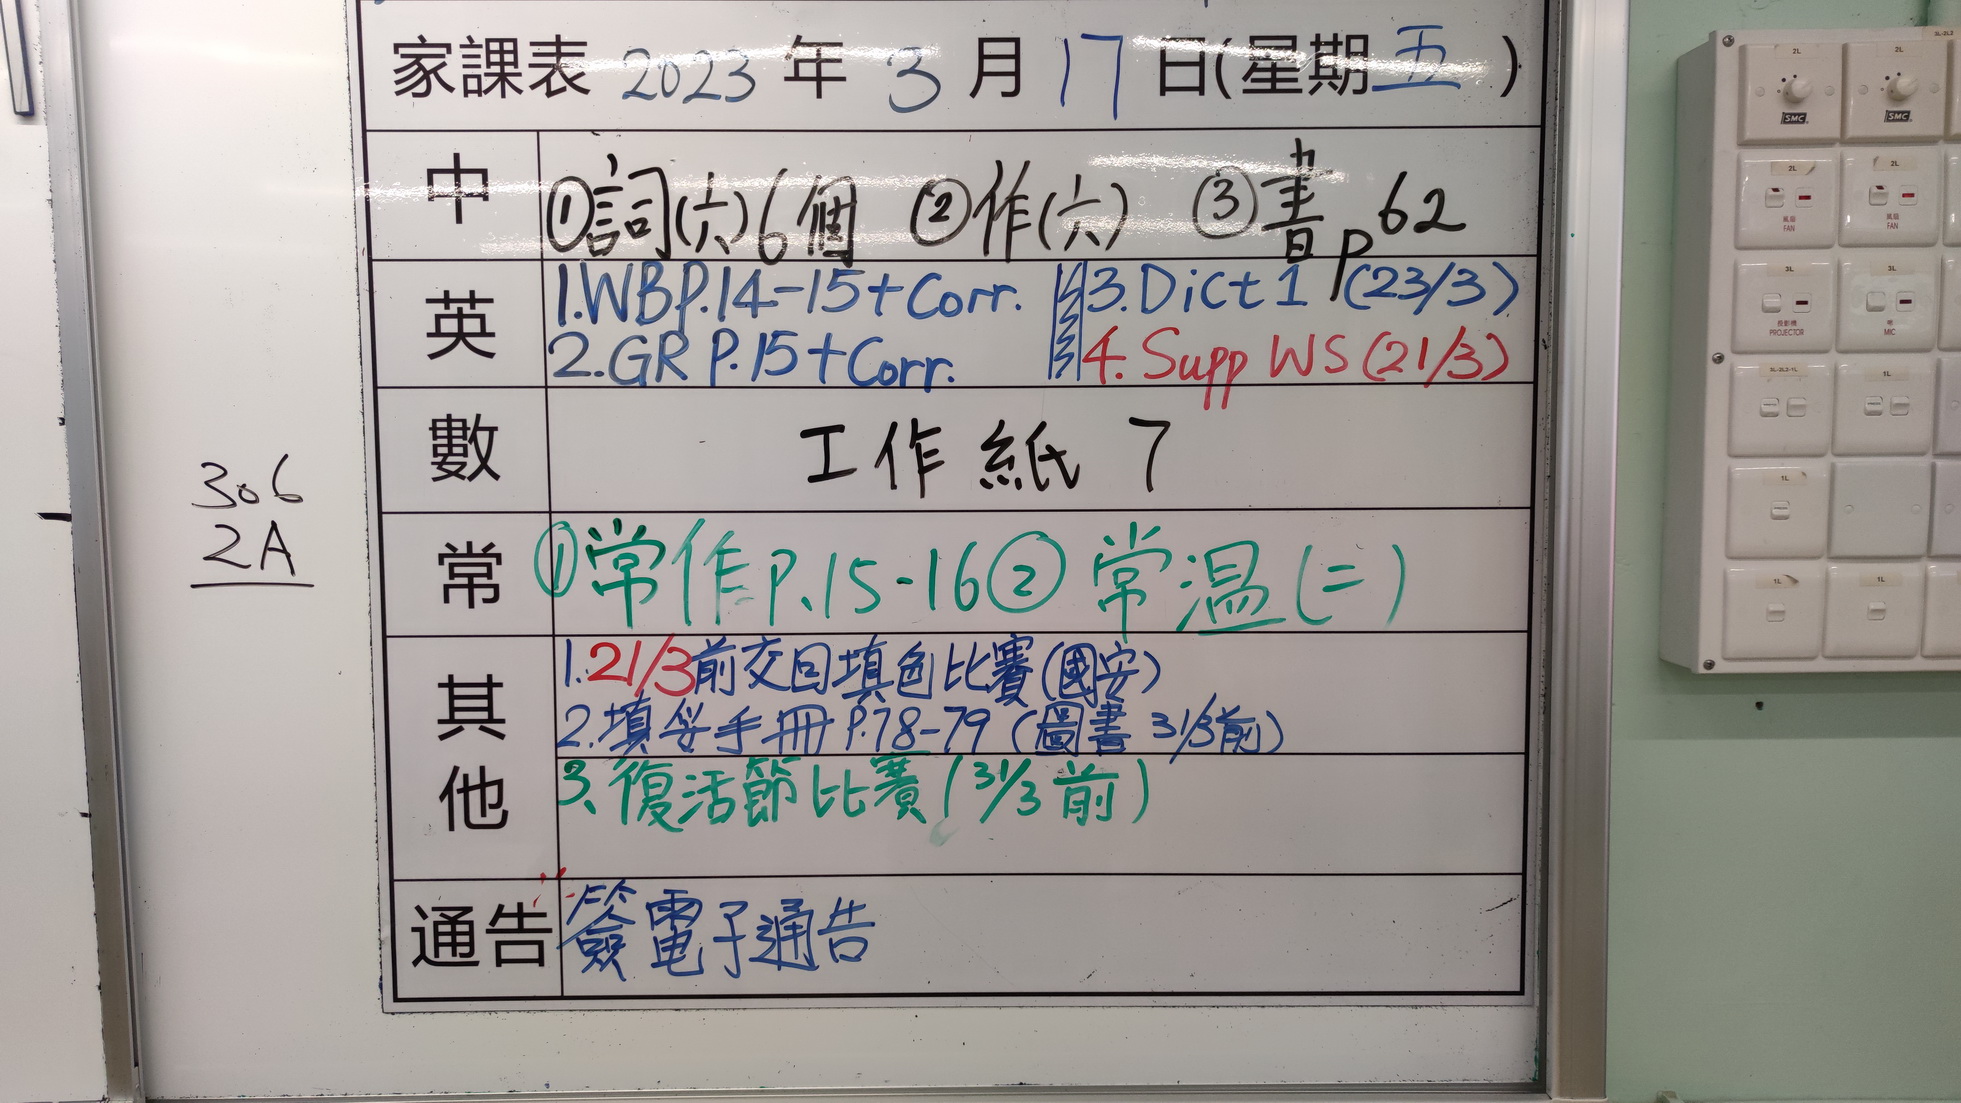 家課表 2023 年 3 月 17 日(星期 五 )
中 ①詞(六)6個 ②作(六) ③書p62
英 1.WB P.14-15+Corr. 3.Dict 1 (23/3)
2.GR P.15+Corr. 4.Supp WS (21/3)
數 工作紙 7
常 ①常作P.15-16 ②常溫(二)
其他 1.21/3前交回填色比賽(國安)
2.填妥手冊P.78-79 (圖書 31/3前)
3.復活節比賽(31/3前)
通告 簽電子通告
306
2A
2L
2L
3L-2L2
SMC
SMC
2L
2L
風扇
FAN
風扇
FAN
3L
3L
投影機
PROJECTOR
咪
MIC
3L-2L2-1L
1L
1L
1L
1L